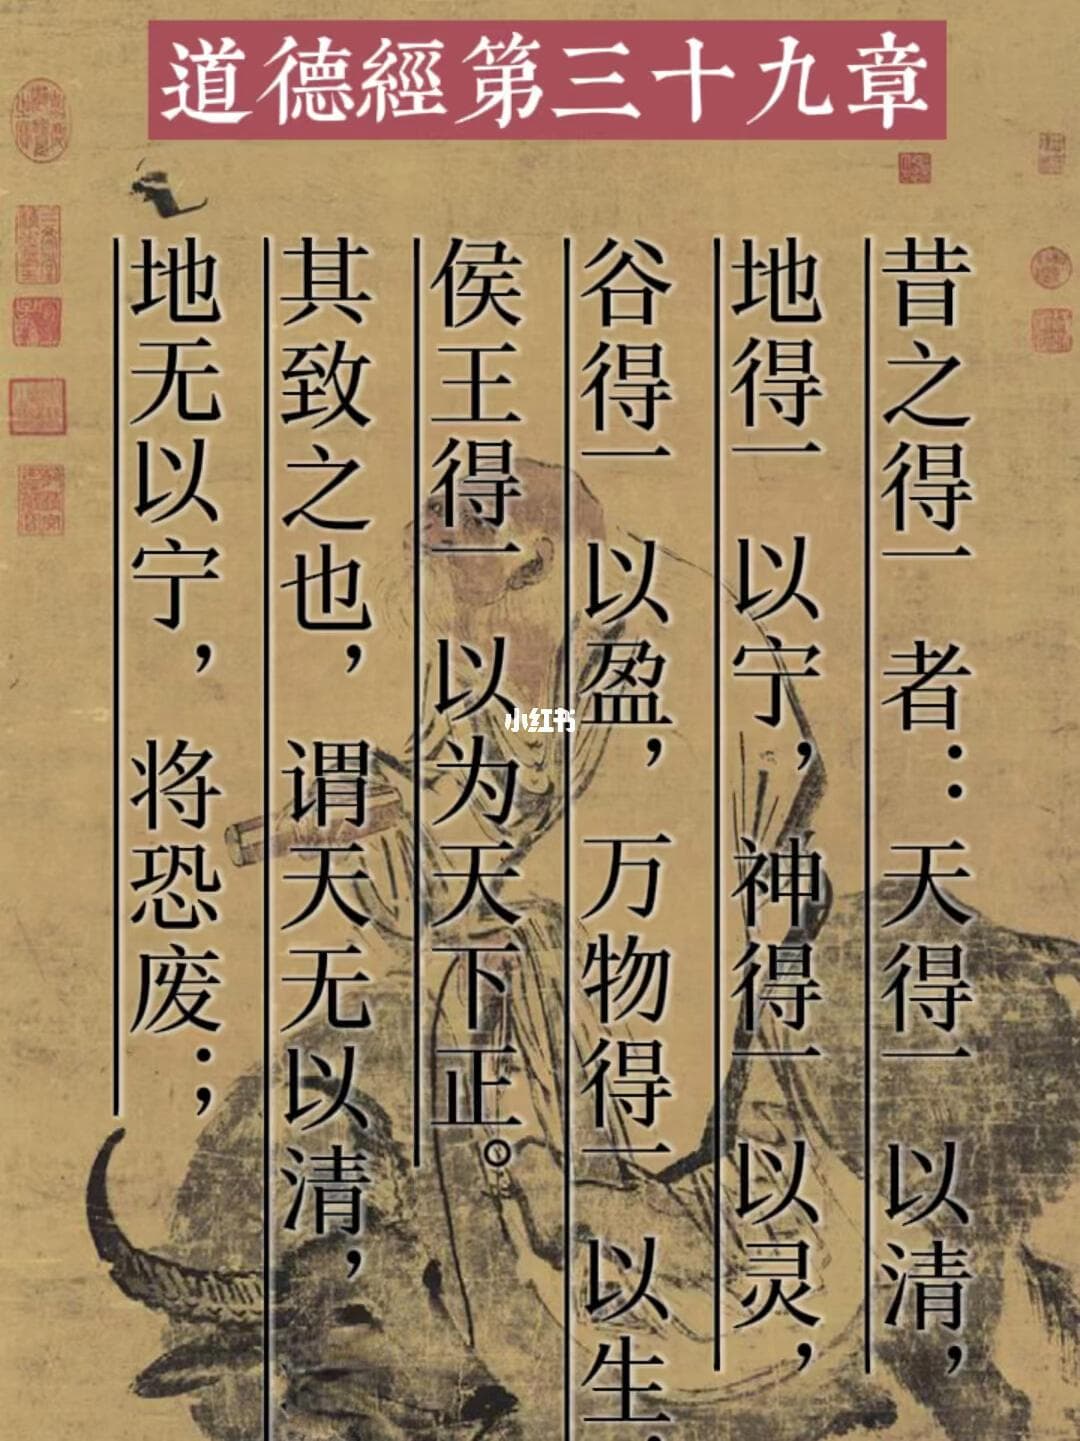 道德經第三十九章
昔之得一者：天得一以清，
地得一以宁，神得一以灵，
谷得一以盈，万物得一以生，
侯王得一以为天下正。
其致之也，谓天无以清，
地无以宁，将恐废；
小红书